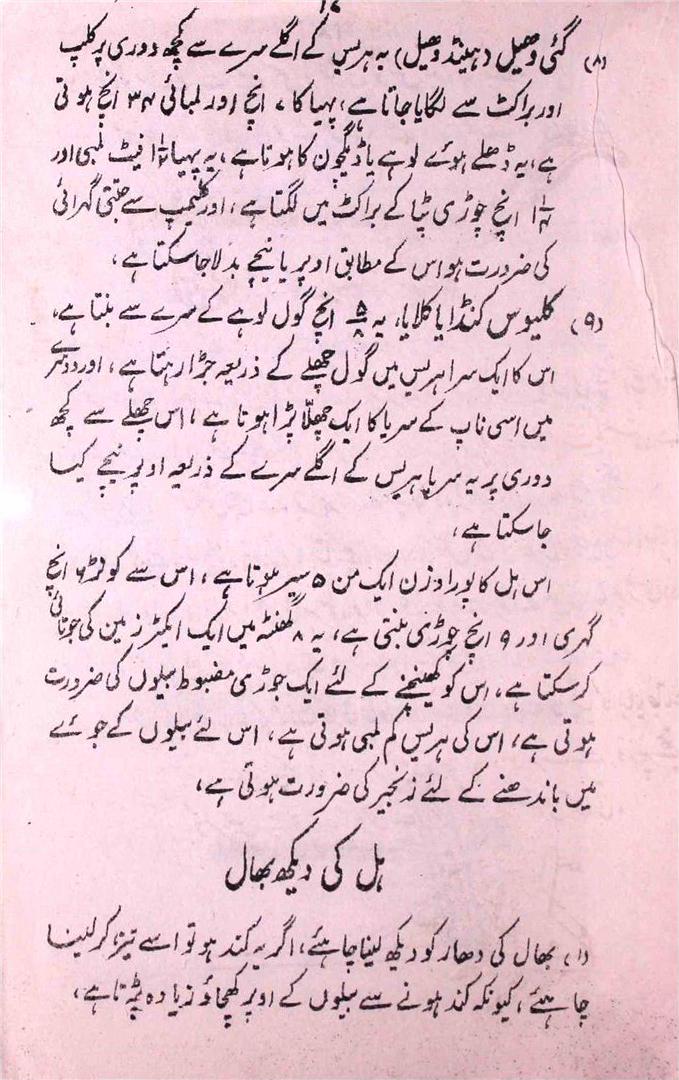 ۱۷
(۸) گئی وھیل (ہینڈ وھیل) یہ ہریس کے اگلے سرے سے کچھ دوری پر کلپ
اور براکٹ سے لگایا جاتا ہے، پہیا کا ۷ انچ اور لمبائی ۳۴ انچ ہوتی
ہے، یہ ڈھلے ہوئے لوہے یا ڈیگچون کا ہوتا ہے، یہ پہیا ۱½ فیٹ لمبی اور
۱½ انچ چوڑی پٹیا کے براکٹ میں لگتا ہے، اور کلیمپ سے جتنی گہرائی
کی ضرورت ہو اس کے مطابق اوپر یا نیچے بدلا جا سکتا ہے،
(۹) کلیوس کنڈا یا کلایا، یہ ۵/۸ انچ گول لوہے کے سرے سے بنتا ہے،
اس کا ایک سرا ہریس میں گول چھلے کے ذریعہ جڑا رہتا ہے، اور دوسرے
میں اسی ناپ کے سریا کا ایک چھلّا پڑا ہوتا ہے، اس چھلے سے کچھ
دوری پر یہ سریا ہریس کے اگلے سرے کے ذریعہ اوپر نیچے کیا
جاسکتا ہے،
اس ہل کا پورا وزن ایک من ۵ سیر ہوتا ہے، اس سے کونڑ ۶ انچ
گہری اور ۹ انچ چوڑی بنتی ہے، یہ ۸ گھنٹہ میں ایک ایکٹر زمین کی جوتائی
کر سکتا ہے، اس کو کھینچنے کے لئے ایک جوڑی مضبوط بیلوں کی ضرورت
ہوتی ہے، اس کی ہریس کم لمبی ہوتی ہے، اس لئے بیلوں کے جوئے
میں باندھنے کے لئے زنجیر کی ضرورت ہوتی ہے،
ہل کی دیکھ بھال
(۱) بھال کی دھار کو دیکھ لینا چاہئے، اگر یہ کند ہو تو اسے تیز کر لینا
چاہئے، کیونکہ کند ہونے سے بیلوں کے اوپر کھچاؤ زیادہ پڑتا ہے،